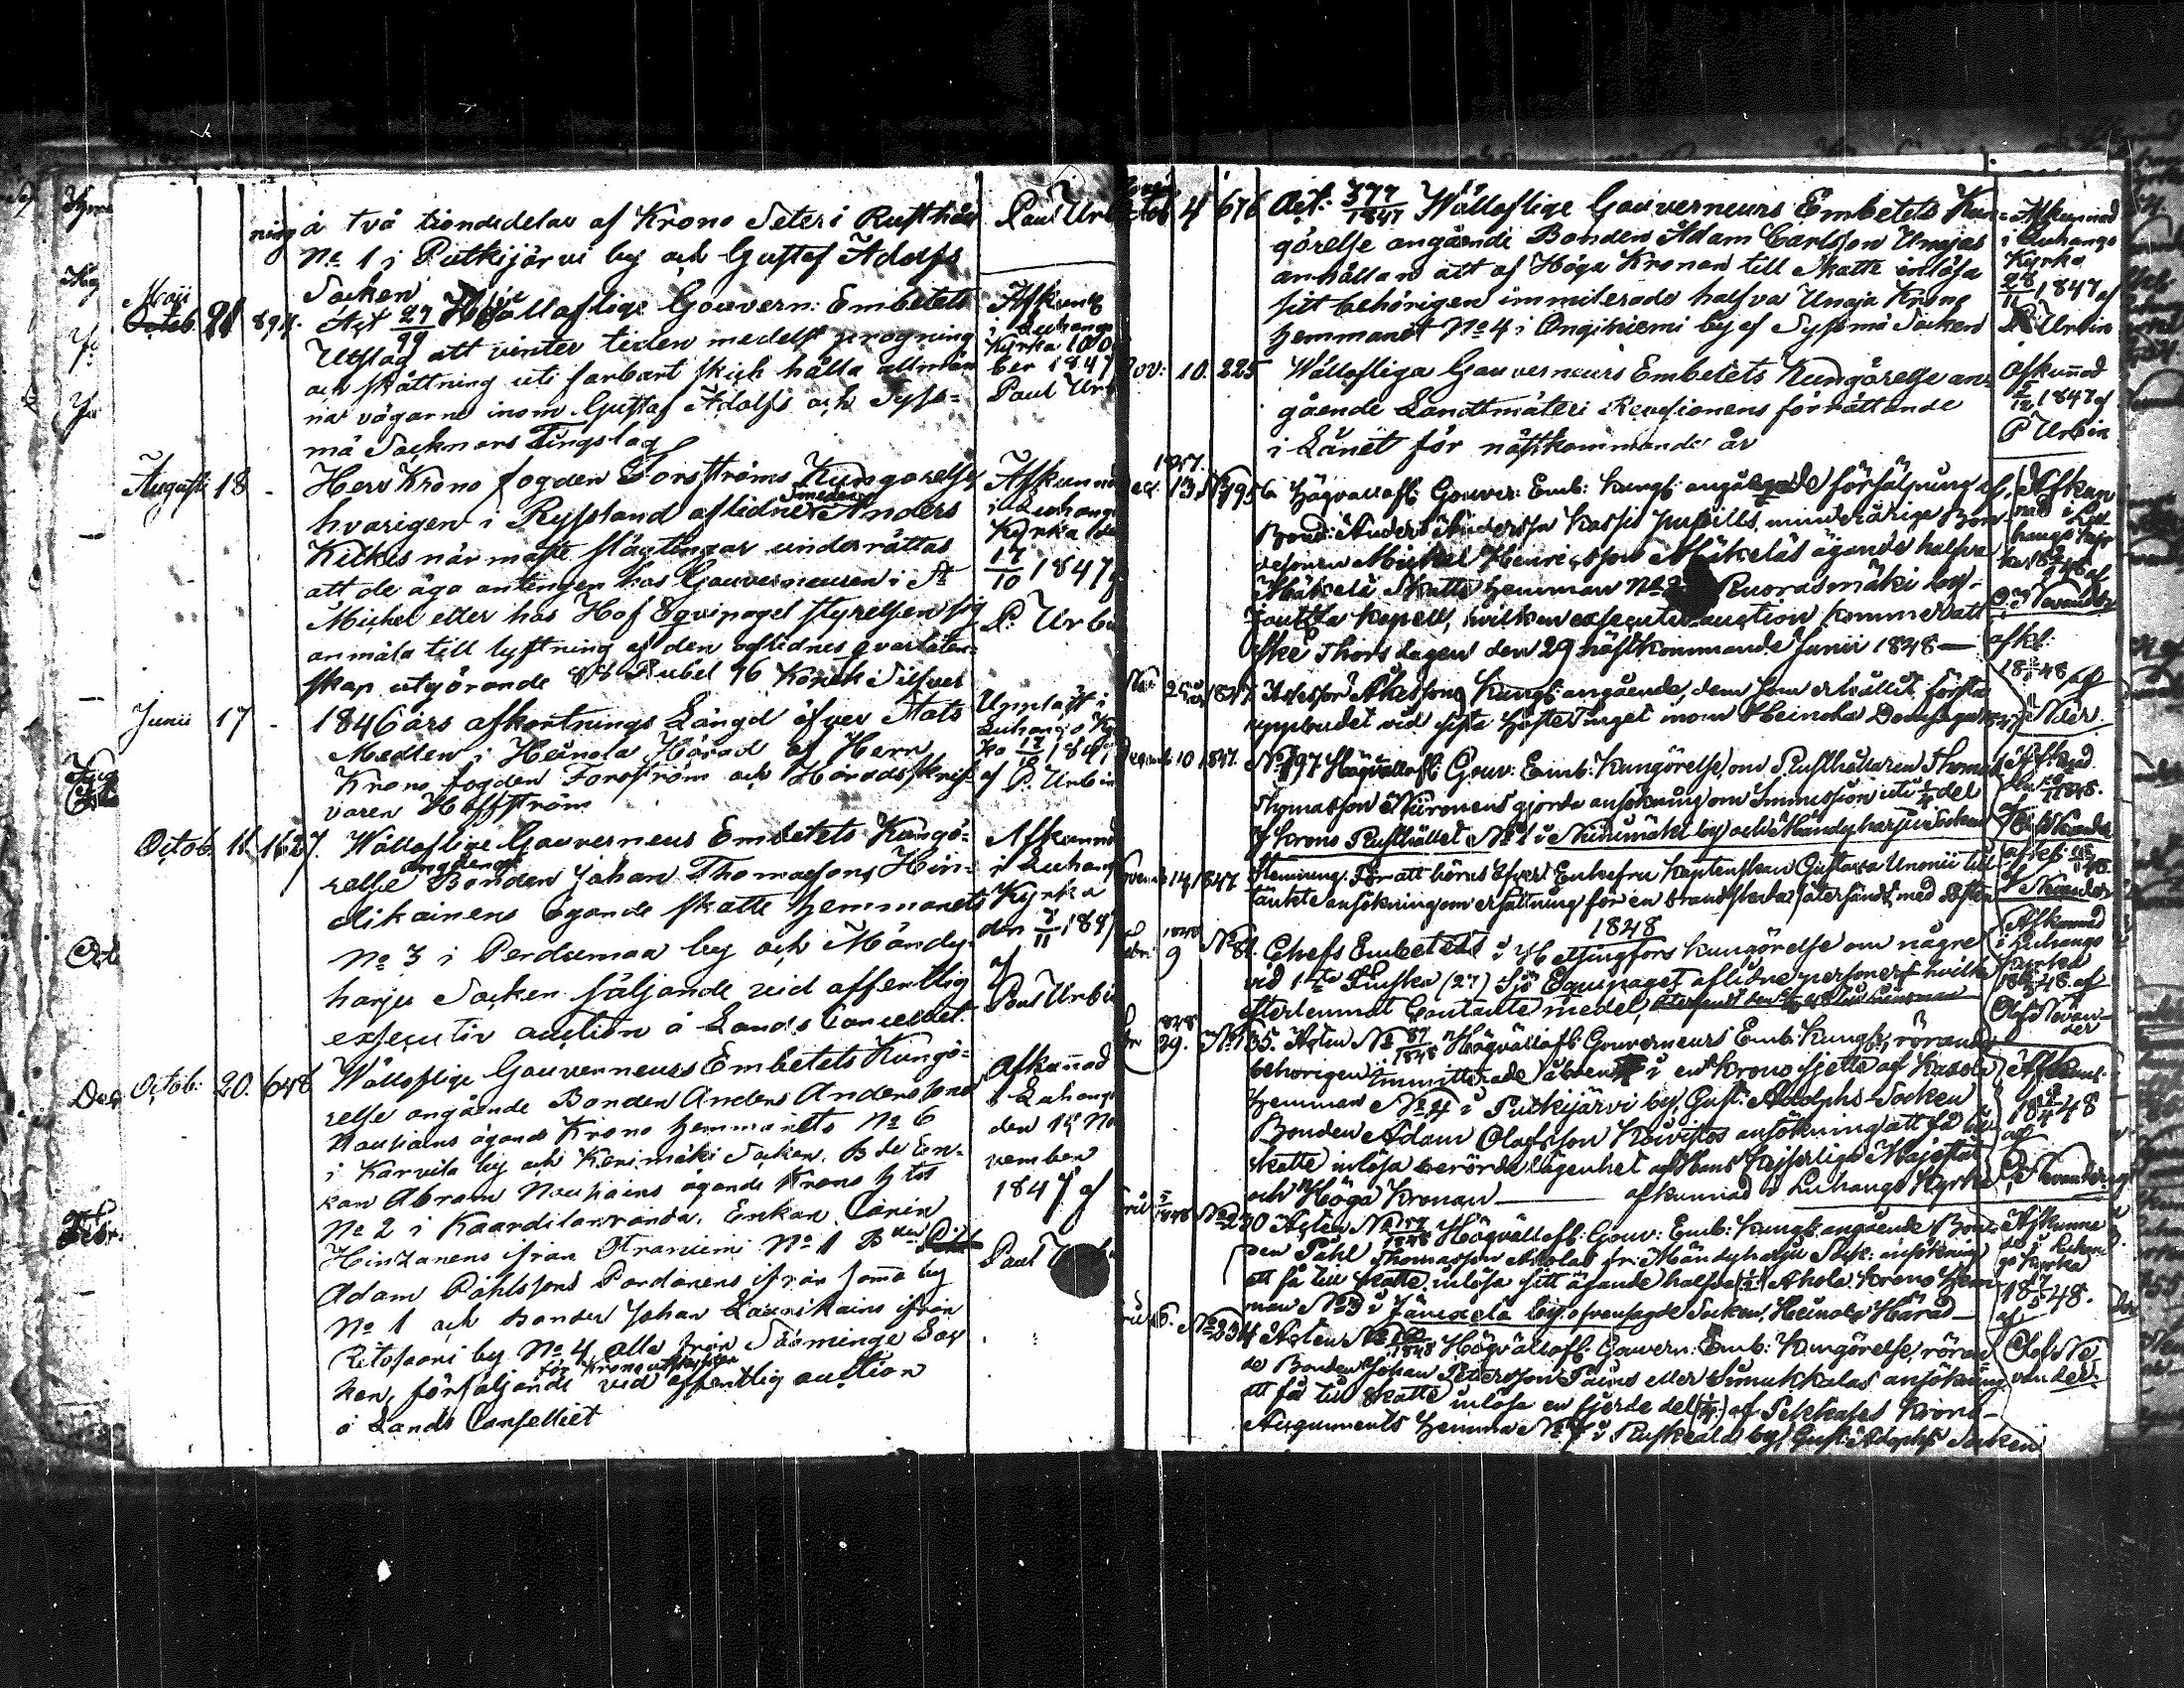 ning å två tiondedelar af Krono Seteri Rusthåll
No 1 i Putkijärvi by och Gustaf Adolfs
Socken
Paul Urb
Maii
Octob. 21 894. Act 27/99 Wälloflige Gouvern: Embetets
Utslag att vinter tiden medelst prognings
och skåttning uti farbart skick hålla allmän
na vägarne inom Gustaf Adolfs och Sysse=
mä Socknars Tingslag
Afkunnad
i Luhango
Kyrka 10
ber 1847
Paul Urb
Augusti 18 - Herr Krono fogden Forsströms Kungörelse
hvarigen i Ryssland aflidne Smeden Anders
Kilkes närmaste slägtingar underrättas
att de äga antingen hos Gouverneuren i St
Michel eller hos Hof Equipaget styrelsen sig
anmäla till lyftning af den aflidnes qvarlåten=
skap utgörande Rubel 96 Kopek Silfver
Afkunnad
i Luhango
Kyrka
17/10 1847
P. Urbin
Junii 17 - 1846 års afkortnings Längd öfver Stats
Medlen i Heinola Härad af Herr
Krono fogden Forsström och Häradsskrif
varen Hoffström
Uppläst i
Luhango Ky
ka 17/10 1847
af P. Urbin
Octob. 11. 1627. Wälloflige Gouverneurs Embetets Kungö=
relse angående Bonden Johan Thomassons Hin=
dikainens ägande skatte hemmanets
No 3 i Perdumaa by och Mändy=
harju Socken säljande vid offentlig
executiv auction å Lands Cancelliet
Afkunnad
i Luhango
Kyrka
den 7/11 1847
af
Paul Urbin
Octob: 20. 648 Wälloflige Gouverneurs Embetets Kungö=
relse angående Bonden Anders Anderssons
Nousiains ägande Krono hemmanets No 6
i Karvila by och Kerimäki Socken. B de En=
kan Abram Nousiains ägande Krono htet
No 2 i Kaardilanranda, Enkan Carin
Hinzanens ifrån No 1 B den
Adam Påhlssons Pardanens ifrån by
No 1 och Bonden Johan Laurikains ifrån
Ritosaari by No 4 alla från Säominge Soc
ken, försäljande för Kronoutskylder vid offentlig auction
å Lands Cancelliet
Afkunnad
i Luhango
den 14 No
vember
1847 af
Paul
Octob 4 676 Act: 377/1847 Wälloflige Gouverneurs Embetets Kun=
görelse angående Bonden Adam Carlsson Unajas
anhållan att af Höga Kronan till Skatte inlösa
sitt behörigen immiterade halfva Unaja Krono
hemmanet No 4 i Ongikiemi by af Syssmä Socken
Afkunnad
i Luhango
Kyrka
28/11 1847 af
P. Urbin
Nov: 10. 225 Wällofliga Gouverneurs Embetets Kungörelse an=
gående Landtmäteri Revisionens förrättande
i Länet för nästkommande år
Afkunnad
5/12 1847 af
P Urbin
1847.
Dec: 13. No 795 Högvällofl: Gouver: Emb: Kungl: angående försäljning af
Bond: Anders Anderssn Kassis pupills, minderårige Bon=
desonen Michel Henricsson Mäkeläs ägande halfva
Mäkelä Skatte hemman No 2 Ruorasmäki by
Jouttsa Kapell, hvilken executiv auction kommer att
ske Thorsdagen den 29 nästkommande Junii 1848 —
Afkun
nad i Lu
hango Kyr
ka 18 48 af
O. Nevander
1847. Assessor Åkessons Kungl: angående, dem som erhållit första
uppbudet vid sista höste Tinget inom Heinola Domsaga
afkl:
18 48 af
Nder.
Decemb 10 1847. No 797 Högvällofl: Gouv: Emb: Kungörelse, om Rusthållaren Thomas
Thomasson Niironens gjorda ansökning om immission uti 1/4 del
af Krono Rusthållet No 1 i Niinimäki by och Mändyharju Socken
Afkunnd.
1848.
14 1847 Stemning. För att höras öfver Enkefru Kaptenskan Gustava Unonii till
tänkte ansökning om ersättning för en brandskada (återsändt med Posten
1848
9 No 81. Chefs Embetets i Helsingfors kungörelse om någre
vid 1sta Finska (27) Sjö Equipaget aflidne personers hvilke
efterlemnat Contante medel,
Afkunnad
i Luhango
Kyrka
18 48. af
Olof Nevan
der
1848
29. No 135. Acten No 87/1848 Högvällofl: Gouverneurs Emb: Kungl:, rörande
behörigen immitterade åboen i en Krono sjette af Kasola
hemman No 4 i Putkijärvi by, Gust: Adolphs Socken
Bonden Adam Olofsson Koivistos ansökning att få till
skatte inlösa berörde lägenhet af Hans Kejserliga Majestät
och Höga Kronan — afkunnad i Luhango Kyrka
Afkun:
18 48
af
O. Nevander.
1848 No 230 Acten No 157/1848 Högvällofl: Gouv: Emb: Kungl: angående Bon=
den Påhl Thomasson Aholas fr: Mändyharju Sock: ansökning
att få till skatte inlösa sitt ägande halfva (1/2) Ahola Krono Hem
man No 3 i by. ofvansagde Socken, Heinola Härad
Afkunna
des i Luhan
go Kyrka
18 48.
af
6. No 234 Acten No 1848 Högvällofl: Gouvern: Emb: Kungörelse, röran
de Bonden Johan Petersson Päivis eller Simukkalas ansökning
att få till skatte inlösa en fjerde del (1/4) af Pekkases Krono
Auguments hemman No 7 i Ruskeala by, Gust: Adolphs Socken
Olof Ne
vander.